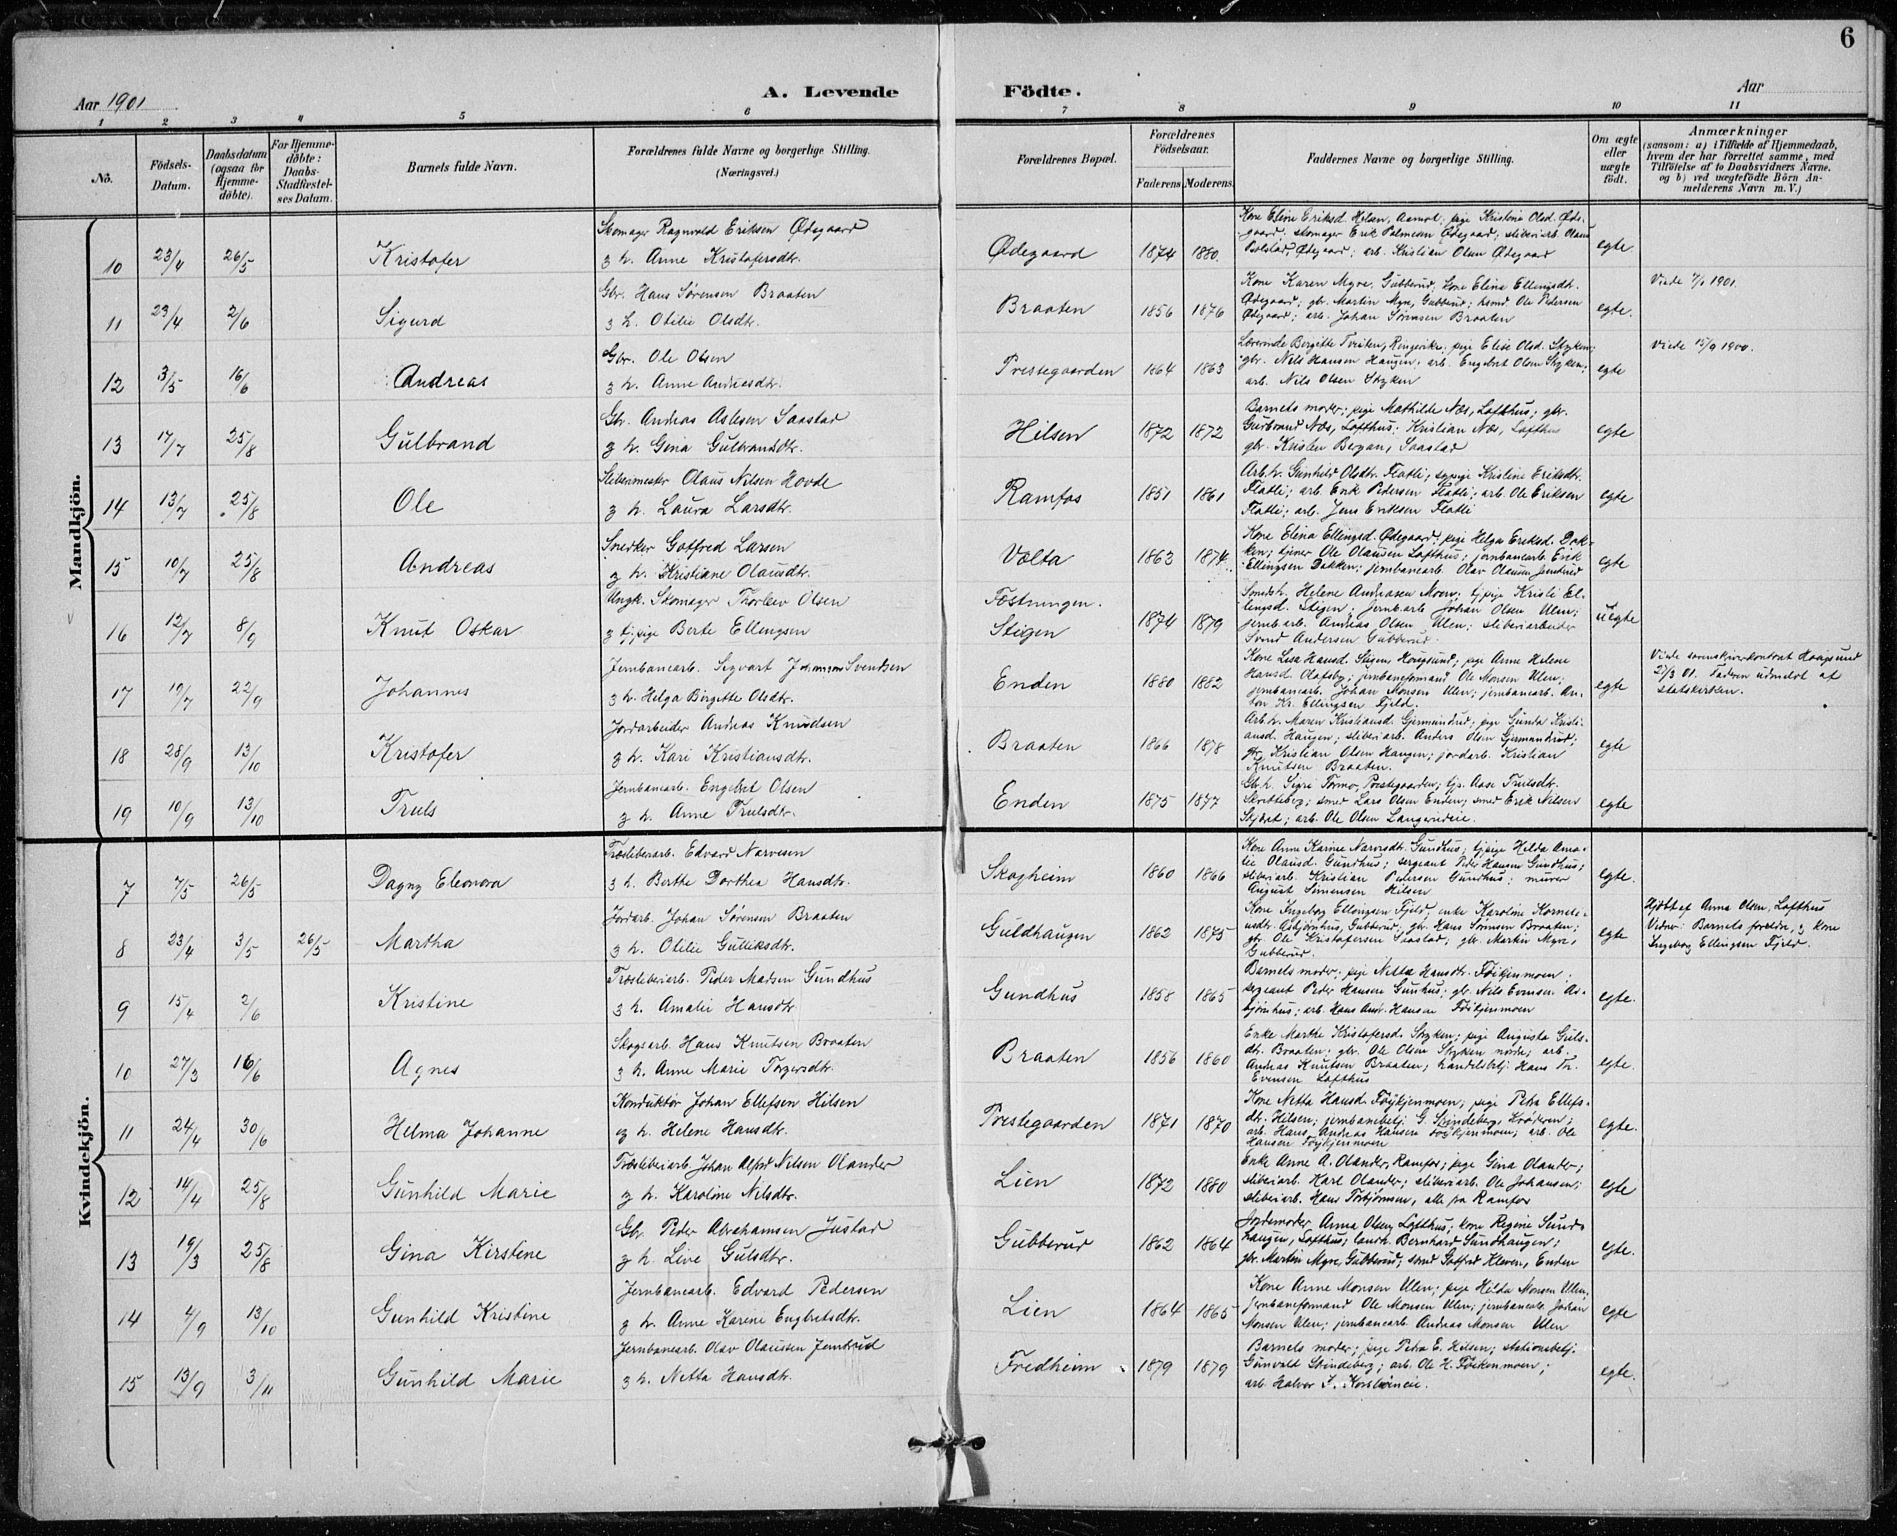 6
Aar 1901
A. Levende
Födte.
Aar
1 2 3 4 5 6 7 8 9 10 11
No.
Födsels-Datum.
Daabsdatum (ogsaa for Hjemme-døbte).
For Hjemme-døbte: Daabs-Stadfæstelses Datum.
Barnets fulde Navn.
Forældrenes fulde Navne og borgerlige Stilling. (Næringsvei.)
Forældrenes Bopæl.
Forældrenes Födselsaar.
Faderens Moderens.
Faddernes Navne og borgerlige Stilling.
Om ægte eller uægte født.
Anmærkninger
(saasom: a) i Tilfælde af Hjemmedaab, hvem der har forrettet samme, med Tilföielse af to Daabsvidners Navne. og b) ved uægtefödte Börn Anmelderens Navn m. V.)
Mandkjön.
10 23/4 26/5 Kristofer
Skomager Ragnvald Eriksen Ødegaard
g h. Anne Kristofersdtr.
Ødegaard 1874 1880.
Kone Eline Eriksd. Hilsen, Aamot; pige Kristine Olsd. Øde-
gaard; skomager Erik Palmesen Ødegaard; sliberiarb. Olaus
Ødegaard; arb. Kristian Olsen Ødegaard
egte.
11 23/4 2/6 Sigurd
Gbr. Hans Sørensen Braaten
g h. Otilie Olsdtr.
Braaten 1856 1876
Kone Karen Myre, Gubberud; kone Elina Ellingsdtr.
Ødegaard; gbr. Martin Myre, Gubberud; Ole Pedersen
Ødegaard; arb. Johan Sørensen Braaten
egte.
Viede 1901.
12 3/5 16/6 Andreas
Gbr. Ole Olsen
g h. Anne Andreasdtr.
Prestegaarden 1864 1863
Lærerinde Bergitte Ringerike; pige Elise Olsd. Stryken;
gbr. Nils Hansen Haugen; arb. Engebret Olsen Stryken;
arb. Nils Olsen Stryken
egte
Viede 15/9 1900.
13 17/7 25/8 Gulbrand
Gbr. Andreas Aslesen Saastad
g h. Gina Gulbrandsdtr.
Hilsen 1872 1872
Barnets moder; pige Mathilde Næs, Lofthus; gbr.
Gulbrand Næs, Lofthus; Kristian Næs, Lofthus
gbr. Kristen Bergan, Saastad
egte
14 13/7 25/8 Ole
Slibermester Olaus Nilsen Hovde
g h. Laura Larsdtr.
Ramfos 1851 1861
Arb.h. Gunhild Olsdtr. Flatli; sypige Kristine Eriksdtr.
Flatli; arb. Erik Pedersen Flatli; arb. Ole Eriksen
Flatli; arb. Jens Eriksen Flatli
egte
15 10/7 25/8 Andreas
Snedker Gotfred Larsen
g h. Kristiane Olausdtr.
Volta 1863 1874
Kone Elina Ellingsd. Ødegaard; pige Helga Eriksd. Dok-
ken; tjener Ole Olausen Lofthus; jernbanearb. Erik
Ellingsen Dokken; jernbanearb. Olav Olausen Jerntrud
egte
16 12/7 8/9 Knut Oskar
Ungk. Skomager Thorleiv Olsen
g tj.pige Berte Ellingsen
Fostningen.
Stigen 1874 1879
Smedh. Helene Andreasen Moen; tj.pige Kristi El-
lingsd. Stigen; jernb.arb. Johan Olsen Ulen;
jernb.arb. Andreas Olsen Ulen; sliberiarbeider
Svend Andersen Gubberud.
uegte
17 19/7 22/9 Johannes
Jernbanearb. Sigvart Johannesen Svendsen
g h. Helga Birgitte Olsdtr.
Enden 1880 1882
Kone Lisa Hansd. Stigen, Hougsund; pige Anne Helene
Hansd. Olafsby; jernbaneformand Ole Monsen Ulen;
jernbanearb. Johan Monsen Ulen; jernbanearb. An-
ton Kr. Ellingsen Fjeld.
egte
Viede sorenskriverkontoret Haugsund
2/3 01. Faderen udmeldt af
statskirken.
18 28/9 13/10 Kristofer
Jordarbeider Andreas Knudsen
g h. Kari Kristiansdtr.
Braaten 1866 1878
Arb.h. Maren Kristiansd. Gjermundrud; pige Gunda Kristi-
ansd. Haugen; sliberiarb. Anders Olsen Gjermundrud;
gbr. Kristian Olsen Haugen; jordarb. Kristian
Knutsen Braaten.
egte
19 10/9 13/10 Truls
Jernbanearb. Engebret Olsen
g h. Anne Trulsdtr.
Enden 1875 1877
Gb.h. Sigri Tormo, Prestegaarden; tjp. Aase Trulsdtr.
Skrotteberg; smed Lars Olsen Enden; smed Erik Nilsen
arb. Ole Olsen Langerudeie.
egte
Kvindekjön.
7 7/5 26/5 Dagny Eleonora
Træsliberiarb. Edvard Narvesen
g h. Berthe Dorthea Hansdtr.
Skogheim 1860 1866
Kone Anne Karine Narvesdtr. Gundhus; tj.pige Hilda Ama-
lie Olausd. Gundhus; sergeant Peder Hansen Gundhus;
sliberiarb. Kristian Pedersen Gundhus; murer
August Simensen Hilsen
egte.
8 23/4 3/5 26/5 Martha
Jordarb. Johan Sørensen Braaten
g h. Otilie Gulliksdtr.
Guldhaugen 1862 1875
Kone Ingeborg Ellingsen Fjeld; enke Karoline Korneli-
usdtr. Asbjørnhus, Gubberud; gbr. Hans Sørensen Braaten;
gbr. Ole Kristofersen Saastad; gbr. Martin Myre,
Gubberud.
egte
Hjdøbt af Anna Olsen, Lofthus
Vidner: Barnets foreldre, g kone
Ingeborg Ellingsen Fjeld.
9 15/4 2/6 Kristine
Træsliberiarb. Peder Madsen Gundhus
g h. Amalie Hansdtr
Gundhus 1858 1865
Barnets moder; pige Netta Hansdtr. Føikjenmoen;
sergeant Peder Hansen Gunhus; gbr. Nils Evensen As-
bjørnhus; arb. Hans Andr. Hansen Føikjenmoen
egte.
10 27/3 16/6 Agnes
Skogsarb. Hans Knutsen Braaten
g h. Anne Marie Torgersdtr.
Braaten 1856 1860
Enke Marthe Kristofersd. Stryken; pige Augusta Guls-
dtr. Braaten; gbr. Ole Olsen Stryken nordre; arb.
Andreas Knutsen Braaten; handelsbetj. Hans Tor.
Evensen Lofthus
egte.
11 24/4 30/6 Helma Johanne
Konduktør Johan Ellefsen Hilsen
og h. Helene Hansdtr.
Prestegaarden 1871 1870
Kone Netta Hansd. Føykjenmoen; pige Petra Ellefs-
dtr. Hilsen; jernbanebetj. G. Strindeberg, Krøderen;
arb. Hans Andreas Hansen Føykjenmoen; arb. Ole
Hansen Føykjenmoen
egte.
12 14/4 25/8 Gunhild Marie
Træsliberiarb. Johan Alfred Nilsen Olander
g h. Karoline Nilsdtr.
Lien 1872 1880
Enke Anne A. Olander, Ramfos; pige Gina Olander;
sliberiarb. Karl Olander; sliberiarb. Ole Johansen;
sliberiarb. Hans Torbjørnsen, alle fra Ramfos
egte
13 19/3 25/8 Gina Kirstine
Gbr. Peder Abrahamsen Justad
g h. Live Gulsdtr.
Gubberud 1862 1864
Jordemoder Anna Olsen, Lofthus; kone Regine Sund-
haugen, Lofthus; landh. Bernhard Sundhaugen;
gbr. Martin Myre, Gubberud; smed Gotfred Kleven, Enden
egte.
14 4/9 13/10 Gunhild Kristine
Jernbanearb. Edvard Pedersen
g h. Anne Karine Engbretsdtr.
Lien 1864 1865
Kone Anne Monsen Ulen; pige Hilda Monsen Ulen;
jernbaneformand Ole Monsen Ulen; jernbanearb. Johan
Monsen Ulen; jernbanearb Andreas Monsen Ulen
egte
15 13/9 3/11 Gunhild Marie
Jernbanearb. Olav Olaussen Jerntrud
g h. Netta Hansdtr.
Fredheim 1879 1879
Barnets moder; pige Petra E. Hilsen; stationsbetj.
Gunvald Strindeberg; arb. Ole H. Føikenmoen;
arb Halvor
egte.